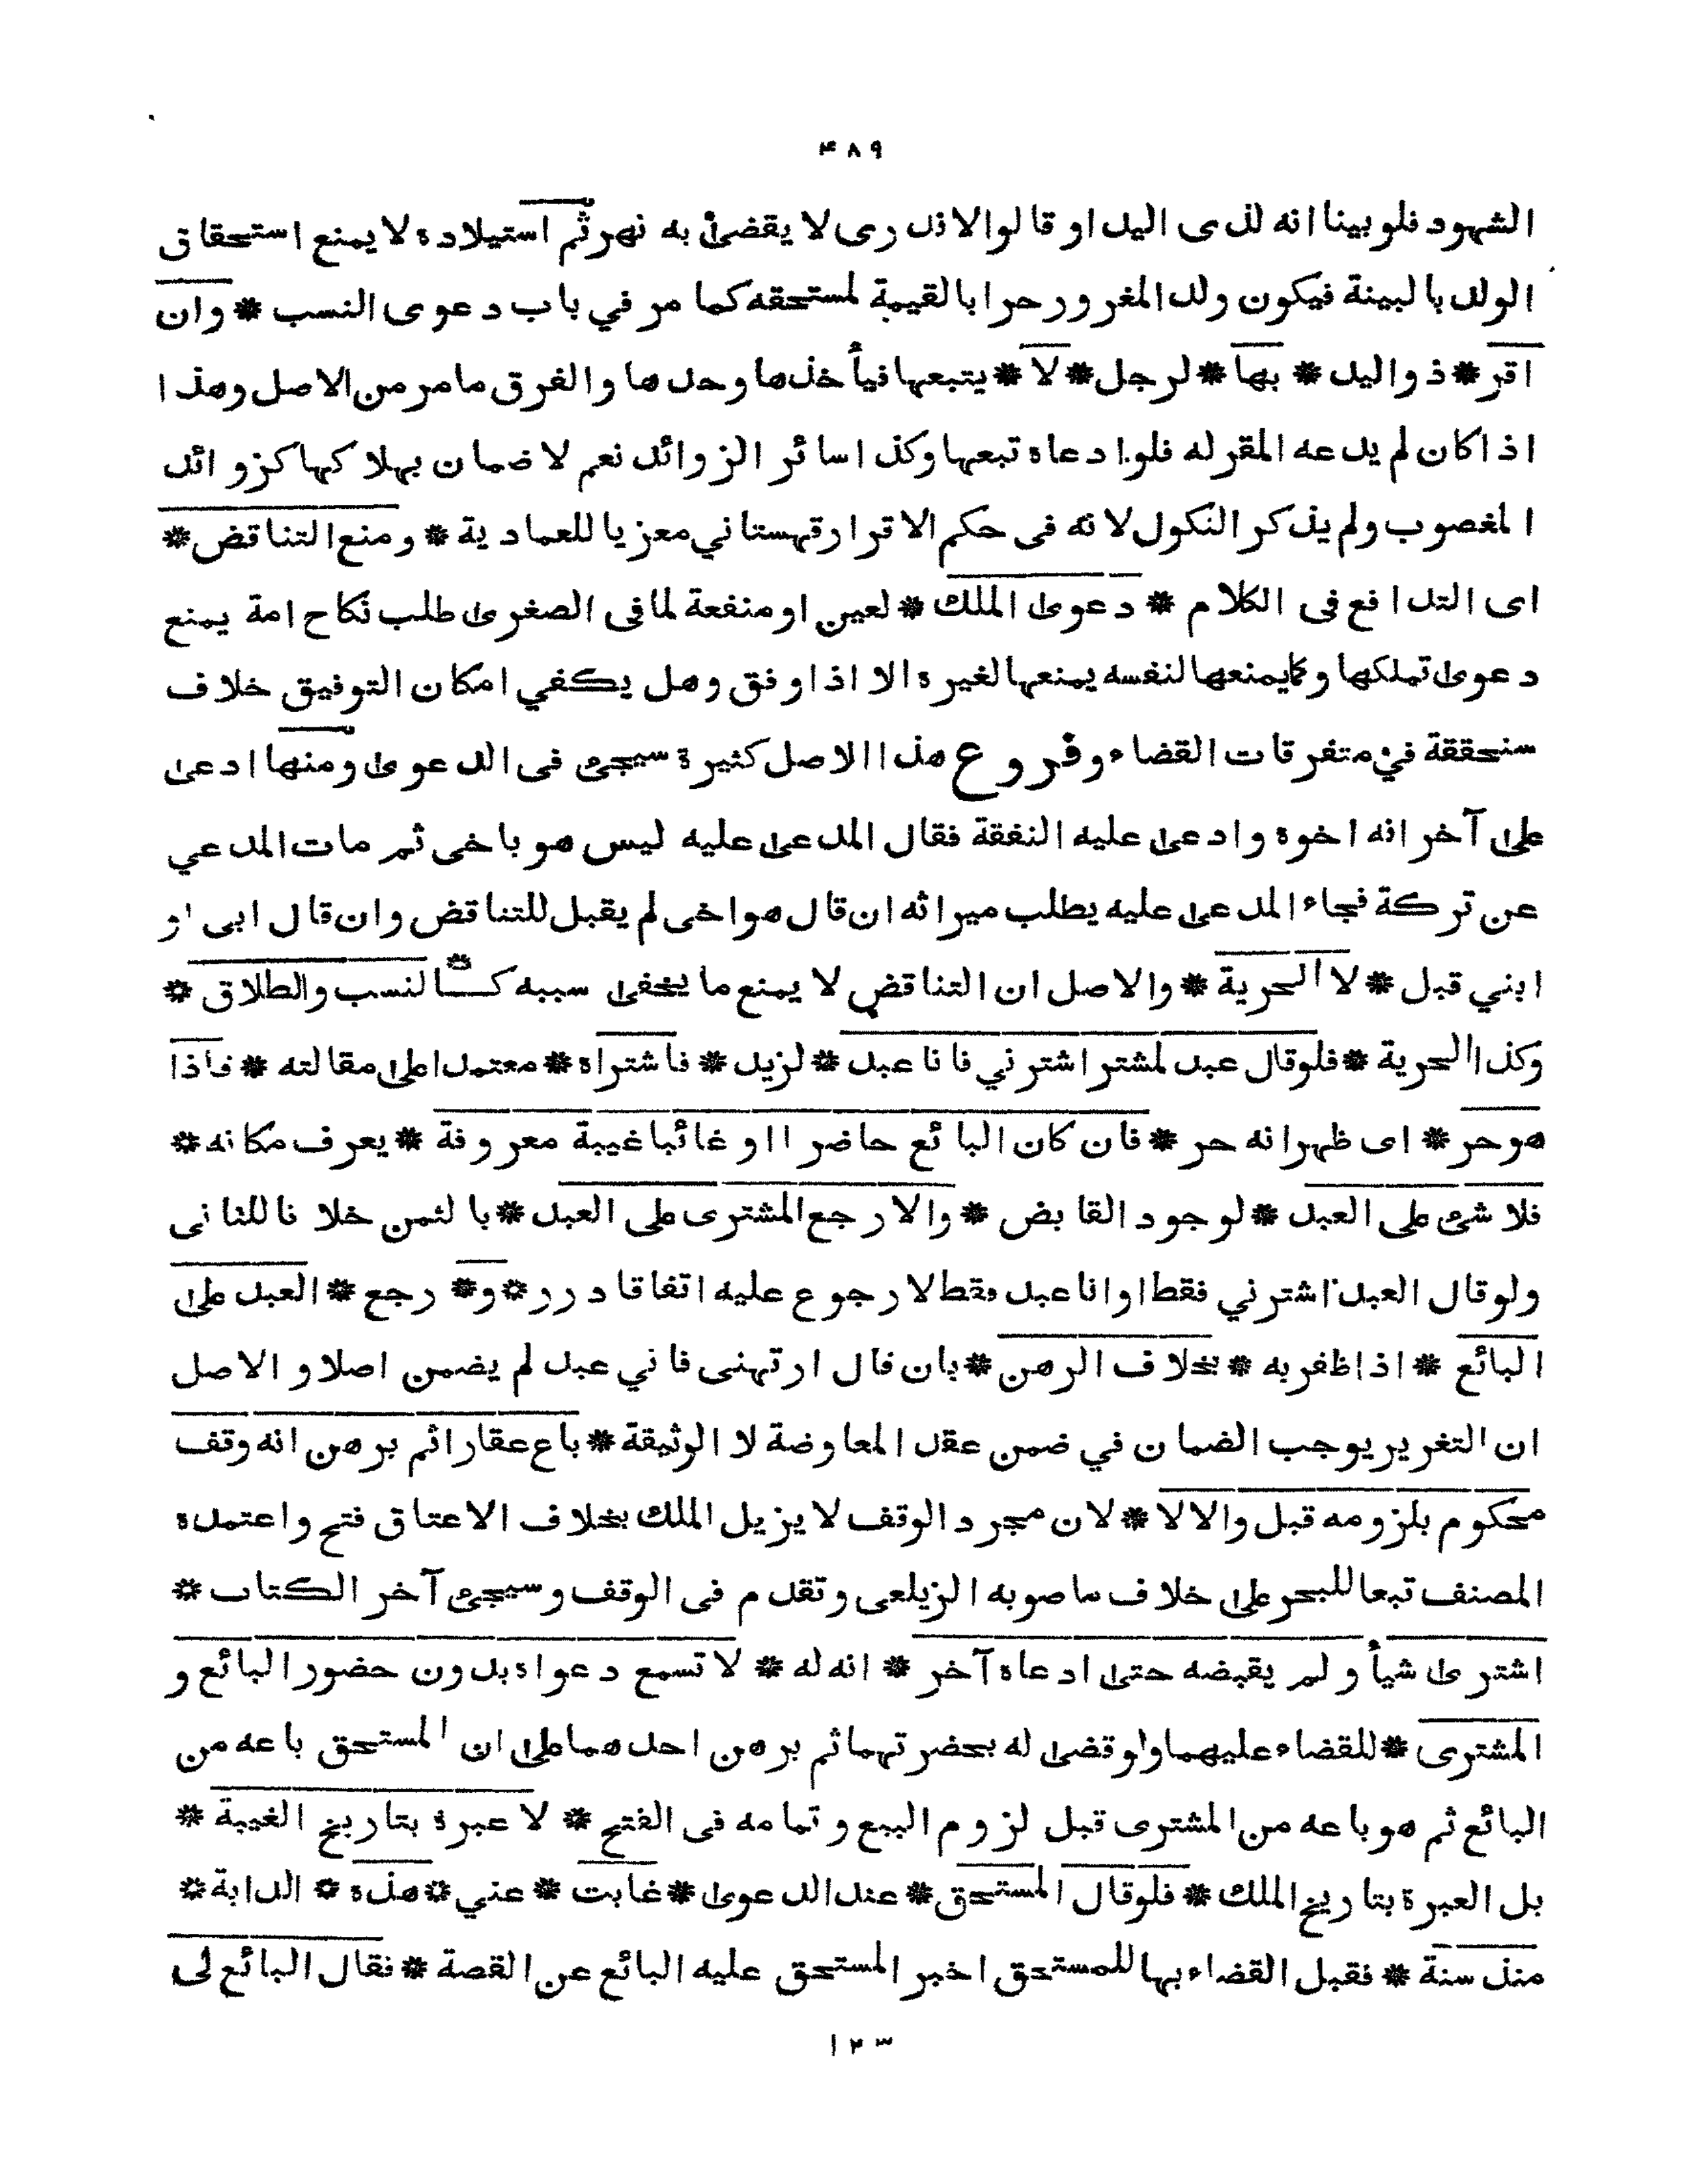 ۴۸۹
الشهود فلو بينا انه لذى اليد او قالوا لا ندرى لا يقضىٰ به نهر ثم استيلاده لا يمنع استحقاق
الولد بالبينة فيكون ولد المغرور حرا بالقيمة لمستحقه كما مر في باب دعوى النسب * وان
اقر * ذو اليد * بها * لرجل * لا * يتبعها فيأخذها وحدها والفرق ما مر من الاصل وهذا
اذا كان لم يدعه المقر له فلو ادعاه تبعها وكذا سائر الزوائد نعم لا ضمان بهلاكها كزوائد
المغصوب ولم يذكر النكول لانه فى حكم الاقرار قهستاني معزيا للعمادية * ومنع التناقض *
اى التدافع فى الكلام * دعوىٰ الملك * لعين او منفعة لما فى الصغرىٰ طلب نكاح امة يمنع
دعوىٰ تملكها وكما يمنعها لنفسه يمنعها لغيره الا اذا وفق وهل يكفي امكان التوفيق خلاف
سنحققة في متفرقات القضاء وفروع هذا الاصل كثيرة سيجئ فى الدعوىٰ ومنها ادعىٰ
علىٰ آخر انه اخوه وادعىٰ عليه النفقة فقال المدعىٰ عليه ليس هو باخى ثم مات المدعي
عن تركة فجاء المدعىٰ عليه يطلب ميراثه ان قال هو اخى لم يقبل للتناقض وان قال ابى او
ابني قبل * لا الحرية * والاصل ان التناقض لا يمنع ما يخفىٰ سببه كـالنسب والطلاق *
وكذا الحرية * فلو قال عبد لمشتر اشترني فانا عبد * لزيد * فاشتراه * معتمدا علىٰ مقالته * فاذا
هو حر * اى ظهر انه حر * فان كان البائع حاضرا او غائبا غيبة معروفة * يعرف مكانه *
فلا شئ علىٰ العبد * لوجود القابض * والا رجع المشترى علىٰ العبد * بالثمن خلافا للثانى
ولو قال العبد اشترني فقط او انا عبد فقط لا رجوع عليه اتفاقا درر * و * رجع * العبد علىٰ
البائع * اذا ظفر به * بخلاف الرهن * بان قال ارتهنى فاني عبد لم يضمن اصلا والاصل
ان التغرير يوجب الضمان في ضمن عقد المعاوضة لا الوثيقة * باع عقارا ثم برهن انه وقف
محكوم بلزومه قبل والا لا * لان مجرد الوقف لا يزيل الملك بخلاف الاعتاق فتح واعتمده
المصنف تبعا للبحر علىٰ خلاف ما صوبه الزيلعى وتقدم فى الوقف وسيجئ آخر الكتاب *
اشترىٰ شيأ ولم يقبضه حتىٰ ادعاه آخر * انه له * لا تسمع دعواه بدون حضور البائع و
المشترى * للقضاء عليهما ولو قضىٰ له بحضرتهما ثم برهن احدهما علىٰ ان المستحق باعه من
البائع ثم هو باعه من المشترى قبل لزوم البيع وتمامه فى الفتح * لا عبرة بتاريخ الغيبة *
بل العبرة بتاريخ الملك * فلو قال المستحق * عند الدعوىٰ * غابت * عني * هذه * الدابة *
منذ سنة * فقبل القضاء بها للمستحق اخبر المستحق عليه البائع عن القصة * فقال البائع لى
۱۲۳